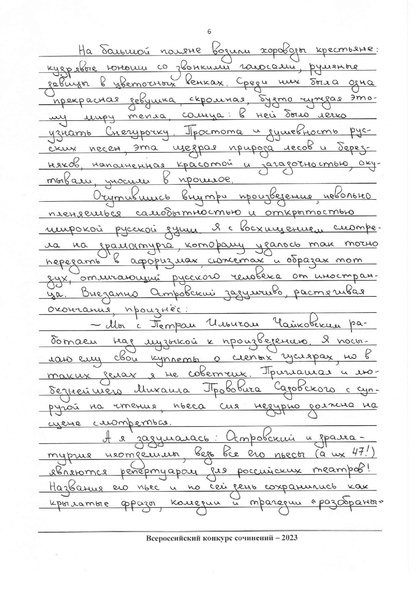 6
На большой поляне водили хороводы крестьяне:
кудрявые юноши со звонкими голосами, румяные
девицы в цветочных венках. Среди них была одна
прекрасная девушка скромная, будто чуждая это-
му миру тепла, солнца: в ней было легко
узнать Снегурочку. Простота и душевность рус-
ских песен, эта щедрая природа лесов и берез-
няков, наполненная красотой и загадочностью оку-
тывали, уносили в прошлое.
Очутившись внутри произведения, невольно
пленяешься самобытностью и открытостью
широкой русской души. Я с восхищением смотре-
ла на драматурга, которому удалось так точно
передать в афоризмах сюжетах и образах тот
дух, отличающий русского человека от иностран-
ца. Внезапно Островский задумчиво, растягивая
окончания, произнёс:
– Мы с Петром Ильичом Чайковским ра-
ботаем над музыкой к произведению. Я посы-
лаю ему свои куплеты о слепых гуслярах, но в
таких делах я не советчик. Приглашал и лю-
безнейшего Михаила Прововича Садовского с суп-
ругой на чтения, пьеса сия недурно должна на
сцене смотреться.
А я задумалась: Островский и драма-
тургия неотделимы, ведь все его пьесы (а их 47!)
являются репертуаром для российских театров!
Названия его пьес и по сей день сохранились как
крылатые фразы, комедии и трагедии "разобраны"
Всероссийский конкурс сочинений – 2023